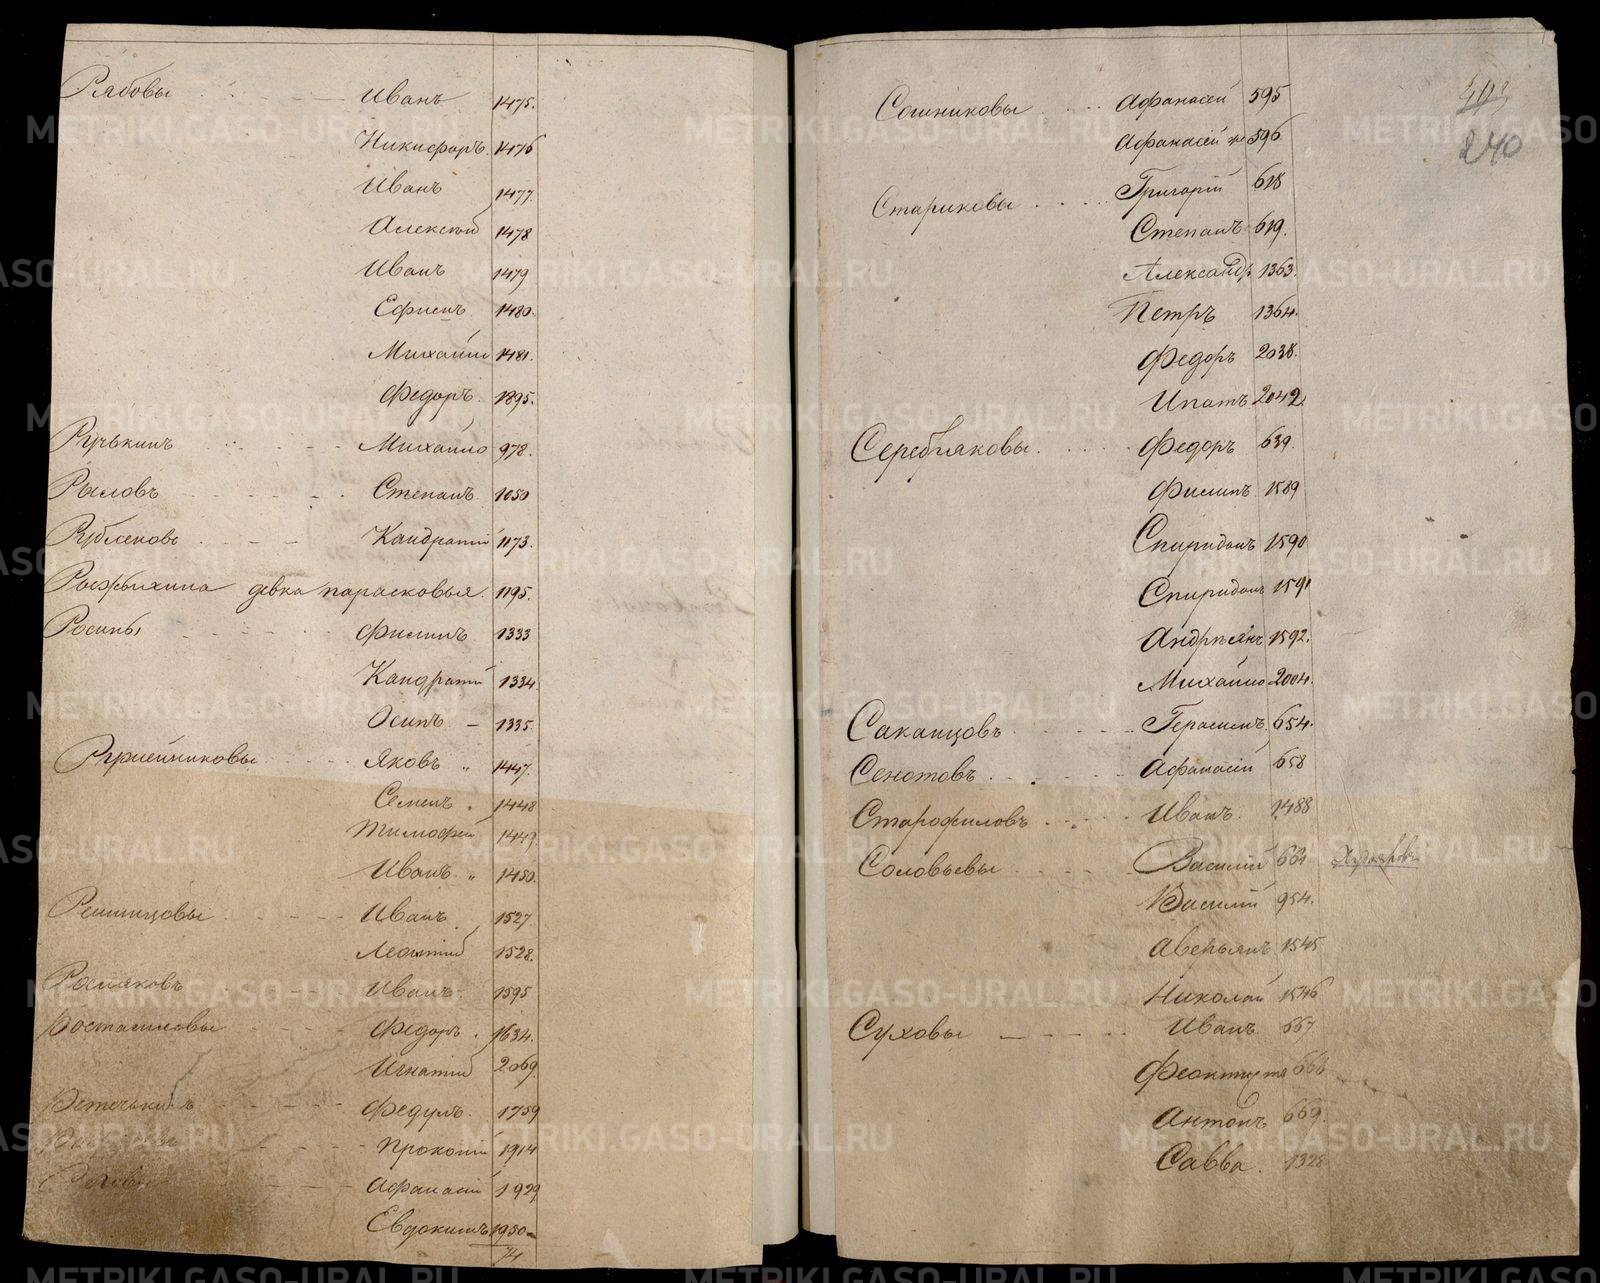 Рябовы Иванъ 1475.
Никифоръ. 1476
Иванъ 1477.
Алексѣй 1478
Иванъ 1479
Ефимъ 1480.
Михайло 1481.
Федоръ. 1895.
Ручькинъ Михайло 978.
Рыловъ Степанъ 1050
Рубленовъ Кандратий 1173.
девка Парасковья. 1195.
Росины Филипъ 1333
Кандратий 1334.
Осипъ 1335.
Яковъ 1447.
Семенъ 1448
Тимофей 1449
Иванъ 1450.
Решицовы Иванъ 1527
Леонтий 1528.
Росляковъ Иванъ 1595
Федоръ 1634.
Игнатий 2069.
Федулъ 1759
Прокопий 1914
Афанасий 1929
Евдокимъ 1930
74
403
240
Сошниковы Афанасей 595
Афанасей же 596
Стариковы Григорий 618
Степанъ 619.
Александръ 1363.
Петръ 1364.
Федоръ 2038.
Ипатъ 2042.
Серебряковы Федоръ 639.
Филипъ 1589
Спиридонъ 1590
Спиридонъ 1591
Андреянъ 1592.
Михайло 2004.
Саканцовъ Герасимъ 654.
Сенотовъ Афанасей 658
Старофиловъ Иванъ. 1488
Соловьевы Василий 664
Василий 954.
Аверьянъ 1545
Николай 1546
Суховы Иванъ 667
Феоктистъ 668
Антонъ 669.
Савва. 1328
METRIKI.GASO-URAL.RU